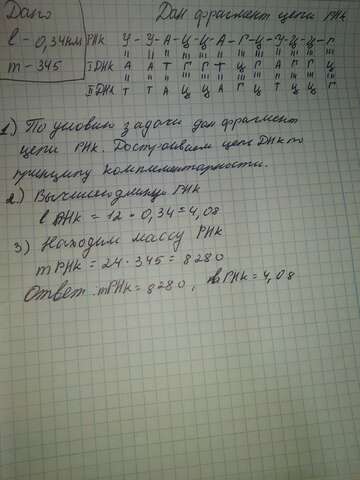 Дано
Дан фрагмент цепи РНк
l - 0,34нм
m - 345
РНк У - У - А - Ц - Ц - А - Г - Ц - У - Ц - Ц - Г
I ДНк А А Т Г Г Т Ц Г А Г Г Ц
II ДНк Т Т А Ц Ц А Г Ц Т Ц Ц Г
1) По условию задачи дан фрагмент
цепи РНк. Достраиваем цепи ДНк по
принципу комплементарности.
2) Вычислю длину
l = 12 · 0,34 = 4,08
3) Находим массу РНк
mРНк = 24 · 345 = 8280
Ответ: mРНк = 8280, РНк = 4,08